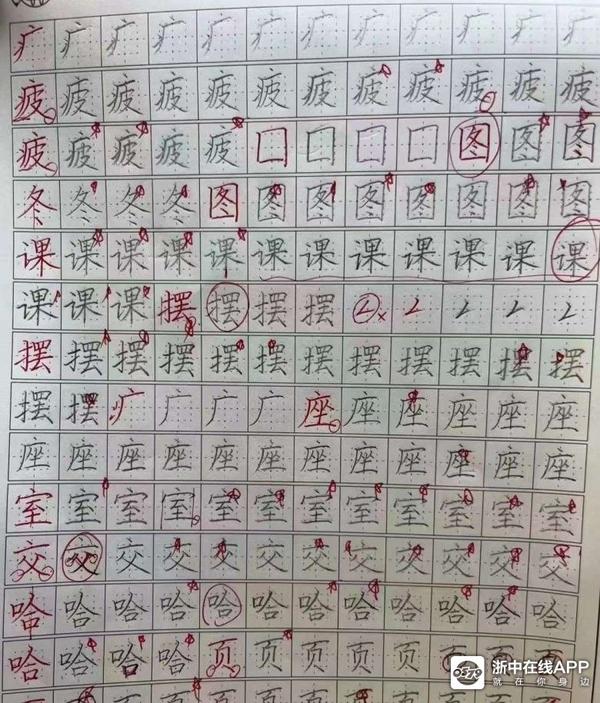 疒疒疒疒疒疒疒疒疒疒疒疒
疲疲疲疲疲疲疲疲疲疲疲疲
疲疲疲疲疲囗囗囗囗图图图
冬冬冬冬图图图图图图图图
课课课课课课课课课课课课
课课课摆摆摆摆
摆摆摆摆摆摆摆摆摆摆摆摆
摆摆疒广广广座座座座座座
座座座座座座座座座座座座
室室室室室室室室室室室室
交交交交交交交交交交交交
哈哈哈哈哈哈哈哈哈哈哈哈
哈哈哈哈页页页页页页
浙中在线APP
就在你身边